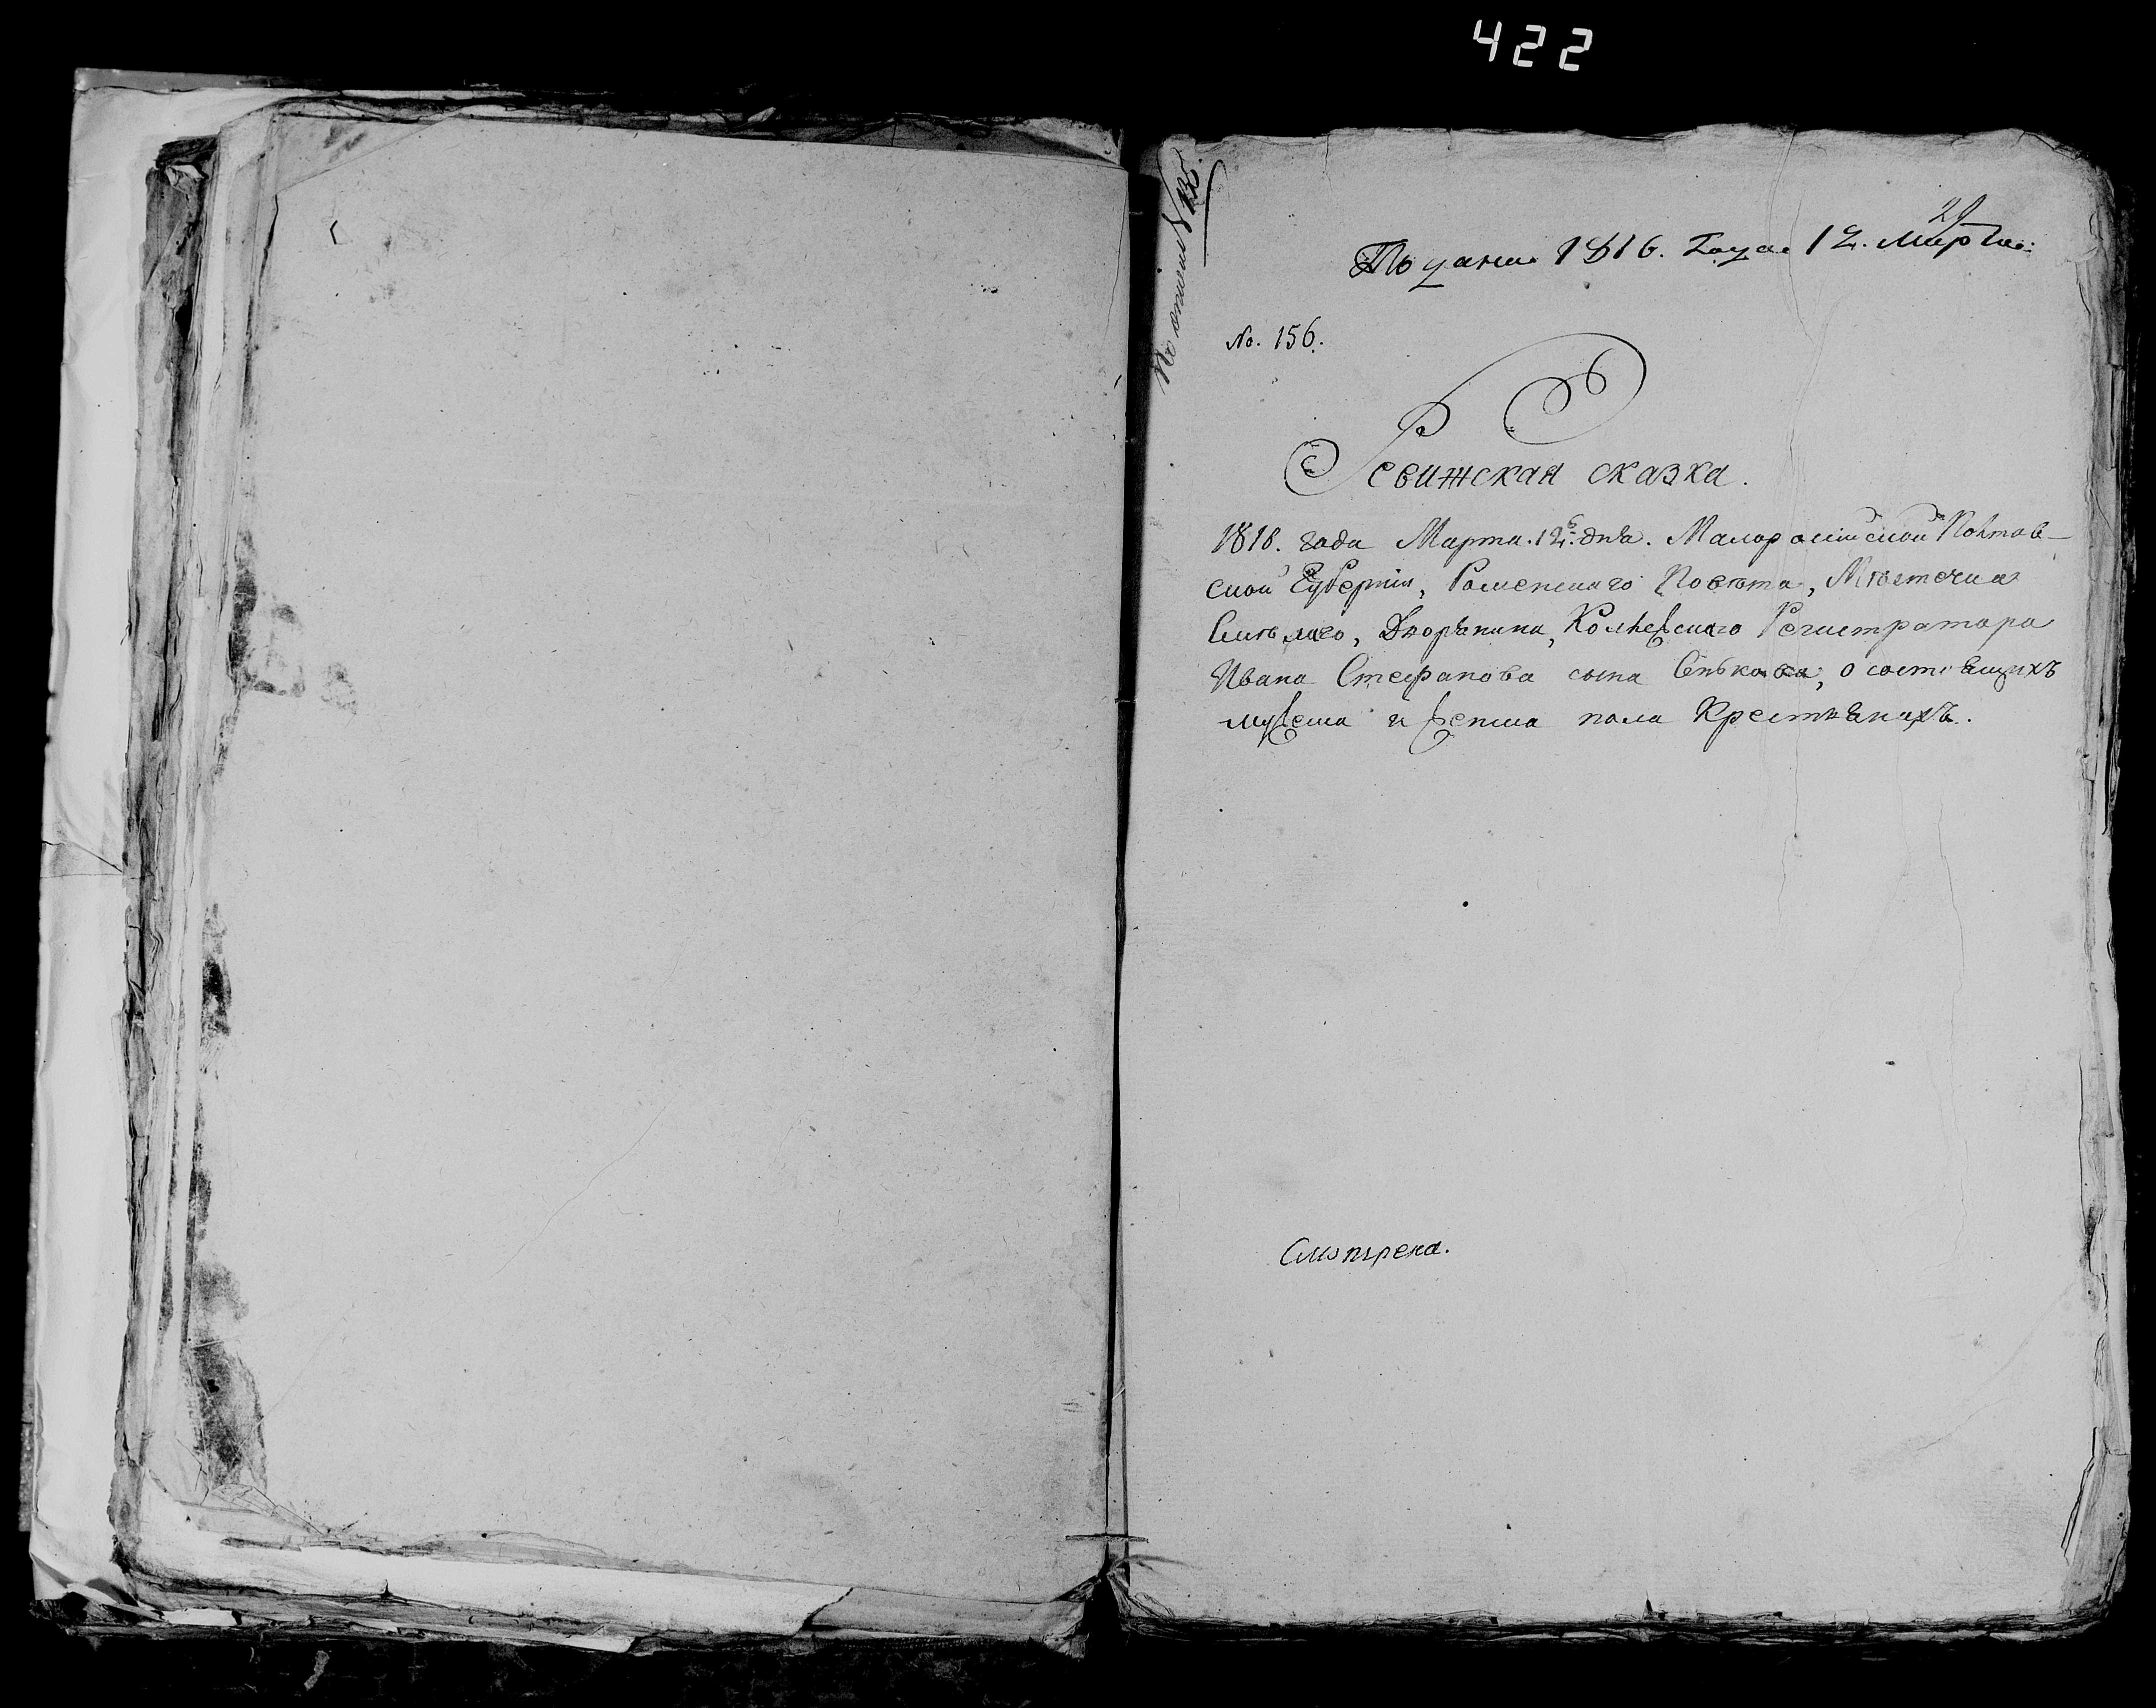 422
По описи N 138.
29
Подана 1816. Года 12. марта:
No. 156.
Ревижская сказка.
1816. года Марта. 12. дня. Малоросiйской Полтав-
ской Губернiи, Роменскаго Повѣта, Мѣстечка
Смѣлаго, Дворянина, Колежскаго Регистратора
Ивана Стефанова сына Сенковска, о состоящихъ
мужеска и женска пола Крестьянахъ.
Смотрена.